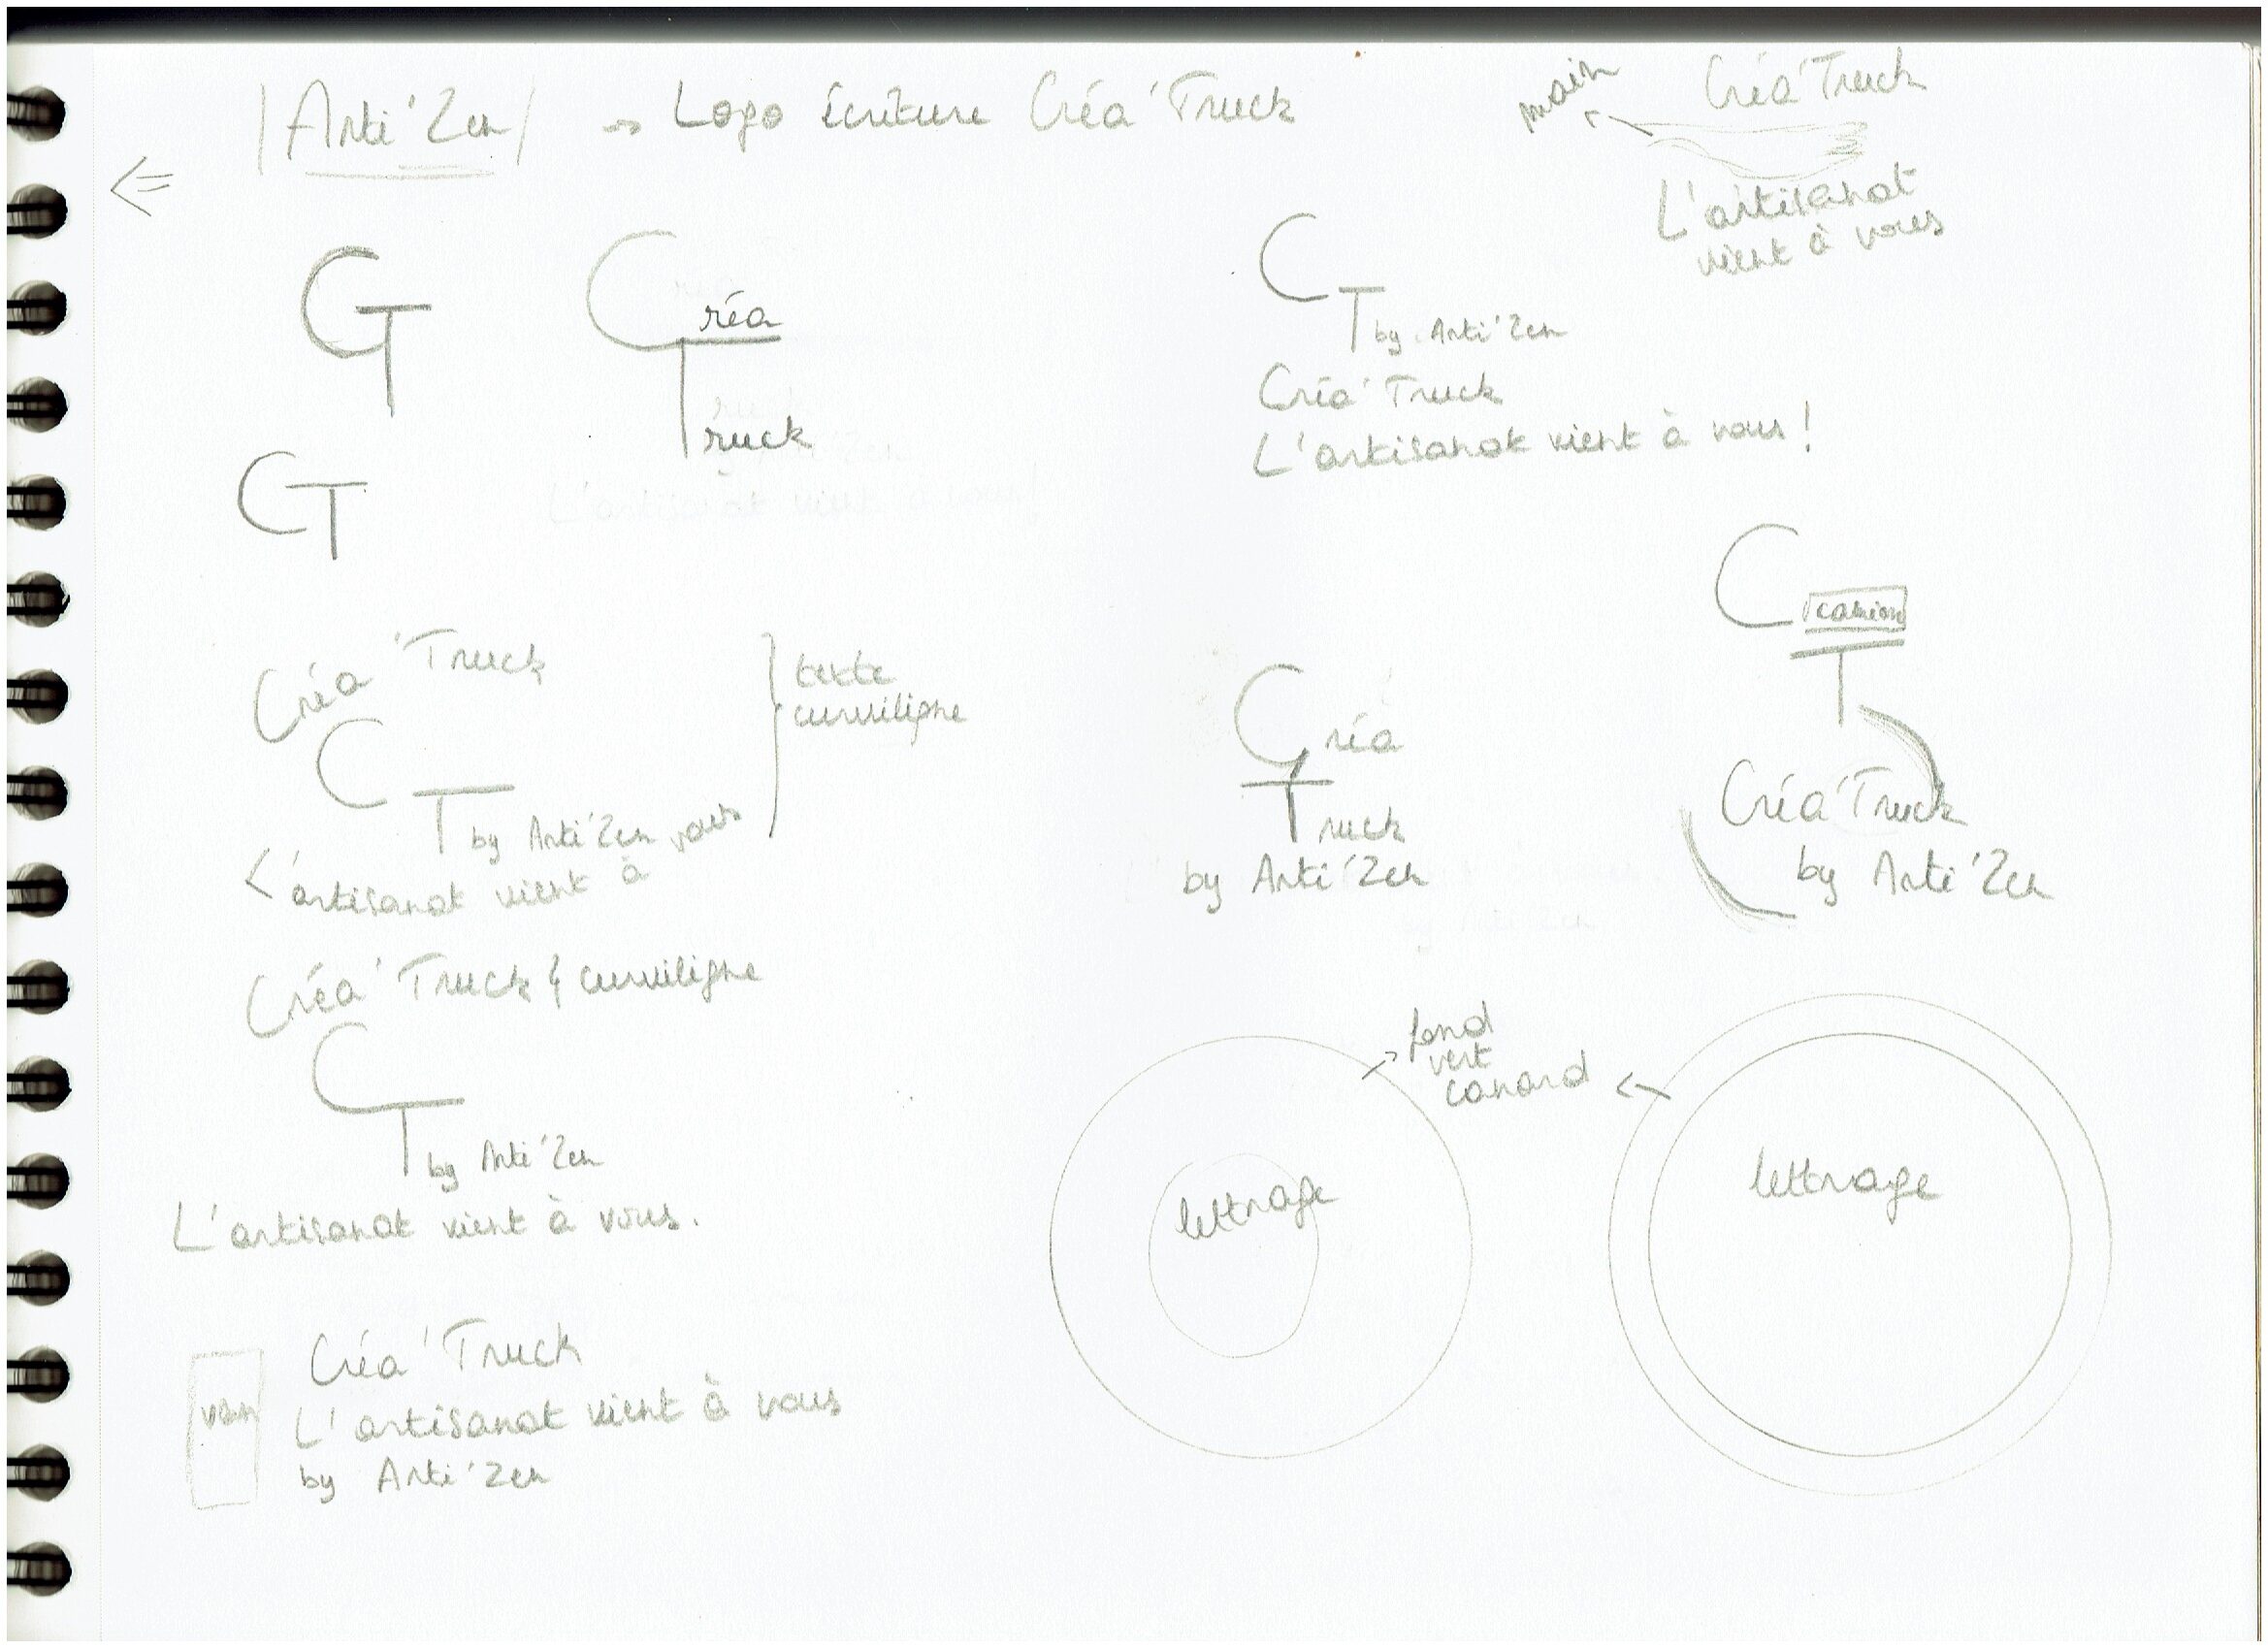 Arti'Zen → Logo écriture Créa'Truck
main
Créa'Truck
L'artisanat
vient à vous
CT
Créa
Truck
CT
by Arti'Zen
Créa'Truck
L'artisanat vient à vous !
CT
Créa'Truck
CT
by Arti'Zen
L'artisanat vient à vous
texte
curviligne
C
camion
T
Créa'Truck
by Arti'Zen
Créa
Truck
by Arti'Zen
Créa'Truck } curviligne
CT
by Arti'Zen
L'artisanat vient à vous.
fond
vert
canard
lettrage
lettrage
Créa'Truck
L'artisanat vient à vous
by Arti'Zen